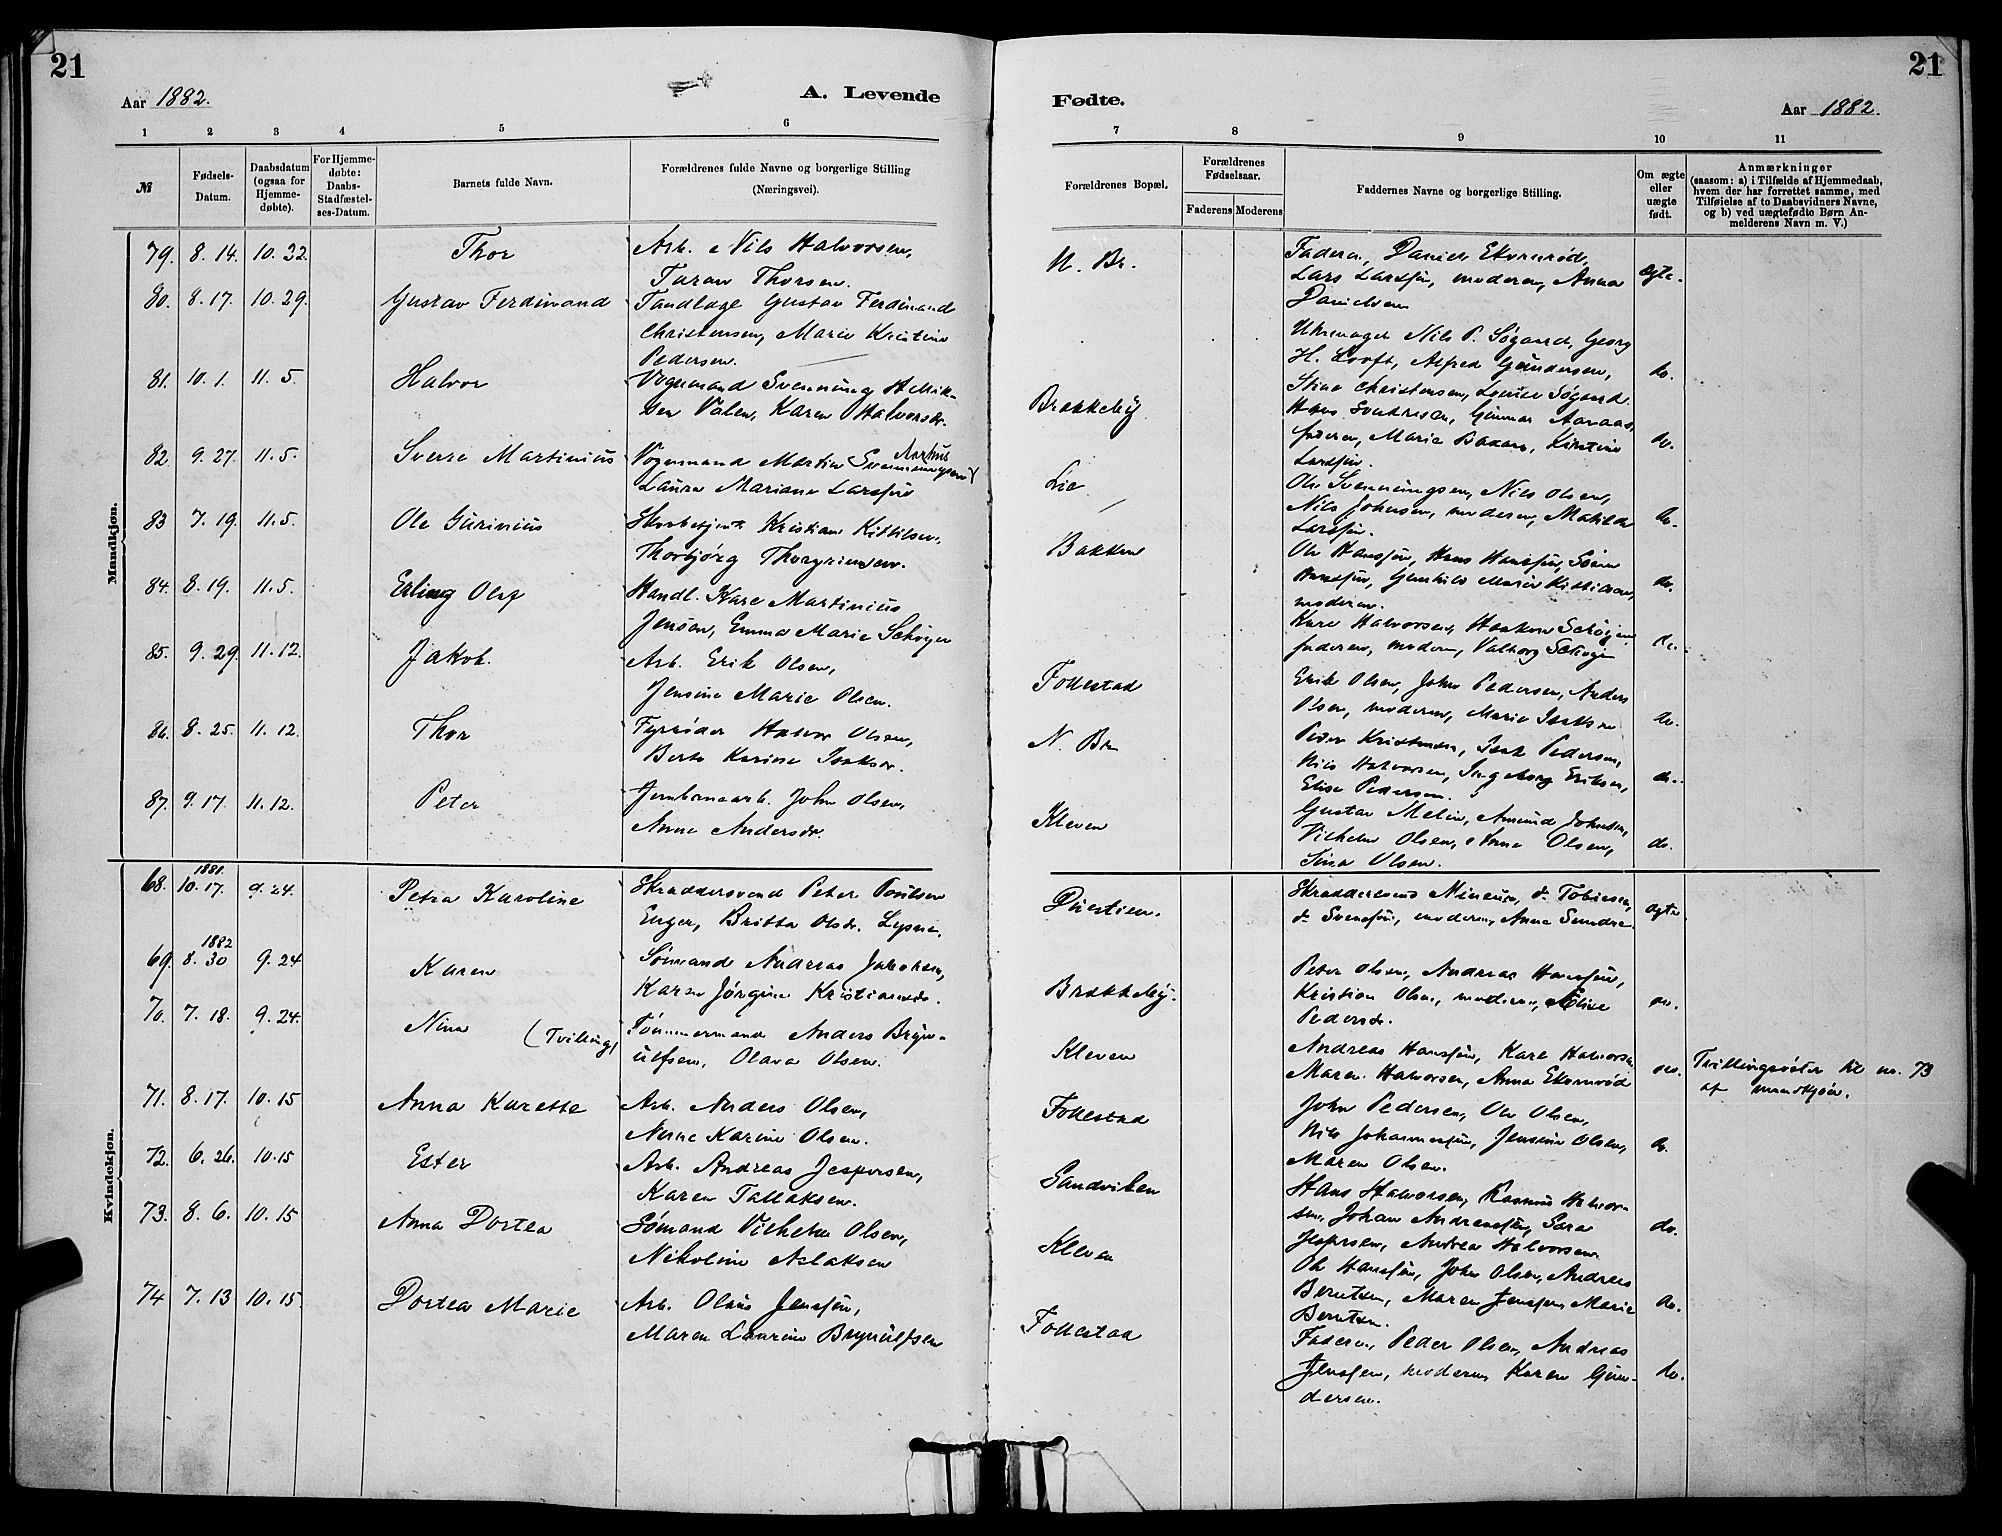 21
21
Aar 1882.
A. Levende
Fødte.
Aar 1882.
1 2 3 4 5 6
7 8 9 10 11
№
Fødsels-
Datum.
Daabsdatum
(ogsaa for
Hjemme-
døbte).
For Hjemme-
døbte:
Daabs-
Stadfæstel-
ses-Datum.
Barnets fulde Navn.
Forældrenes fulde Navne og borgerlige Stilling
(Næringsvei).
Forældrenes Bopæl.
Forældrenes
Fødselsaar.
Faderens Moderens
Faddernes Navne og borgerlige Stilling.
Om ægte
eller
uægte
født.
Anmærkninger
(saasom: a) i Tilfælde af Hjemmedaab,
hvem der har forrettet samme, med
Tilføielse af to Daabsvidners Navne,
og b) ved uægtefødte Børn An-
melderens Navn m. V.)
Mandkjøn.
79. 8. 14. 10. 22. Thor Arb. Nils Halvorsen,
Taran Thorsen.
N. Br.
Faderen, Daniel Ekornrød,
Lars Larssøn, moderen, Anna
Danielsen
ægte.
80. 8. 17. 10. 29. Gustav Ferdinand Tandlæge Gustav Ferdinand
Christensen, Marie Kristine
Pedersen.
Uhrmager Nils P. Søgaard, Georg
H. Looft, Alfred Gundersen,
Stina Christensen, Louise Søgaard.
do.
81. 10. 1. 11. 5. Halvor Vognmand Svenning Henrik-
sen Valen, Karen Halvorsdr.
Brækkeby
Hans Gunnar Aanaas,
faderen, Marie Kirstine
Larssøn.
do.
82. 9. 27. 11. 5. Sverre Martinius Vognmand Martin Svenningsen
Laura Mariane Larssøn
Lie
Ole Svenningsen, Nils Olsen,
Nils Johnsen, moderen, Mathilde
Larssøn.
do.
83 7. 19. 11. 5. Ole Gurinius Kristian Kittilsen,
Thorbjørg
Bakken
Ole Hanssøn, Hans Hanssøn, Søren
Hanssøn, Gunhild Marie Kittilsen,
moderen.
do.
84. 8. 19. 11. 5. Erling Olaf Handl. Kare Martinius
Jensen, Emma Marie Schøyer
Kare Halvorsen, Haakon
faderen, moderen, Valborg
do.
85. 9. 29. 11. 12. Jakob. Arb. Erik Olsen,
Jensine Marie Olsen.
Follestad
Erik Olsen, John Pedersen, Anders
Olsen, moderen, Marie Isaksen
do.
86. 8. 25. 11. 12. Thor Fyrbøder Halvor Olsen,
Berte Karine Isaksdr.
N. Br
Peder Kristensen, Isak Pedersen,
Nils Halvorsen, Ingeborg Eriksen,
Elise Pedersen.
do.
87. 9. 17. 11. 12. Peter Jernbanearb. John Olsen,
Anne Andersdr.
Kleven
Gustav Melin, Amund Johnsen,
Vilhelm Olsen, Anna Olsen,
Sina Olsen.
do.
Kvindekjøn.
68. 1881. 10. 17. 9. 24. Petra Karoline Skræddersvend Peter Poulsen
Enger, Britta Olsdr.
Skræddersvend Tobiesen,
moderen, Anna
ægte
69. 1882 8. 30 9. 24 Karen Sømand Andreas Jakobsen,
Karen Jørgine Kristiansdr.
Brækkeby.
Peter Olsen, Andreas Hanssøn,
Kristian Olsen, moderen, Elise
Pedersdr.
do.
70. 7. 18. 9. 24. Nina (Tvilling) Tømmermand Anders Bryn-
ulfsen, Olava Olsen.
Kleven
Andreas Hanssøn, Kare Halvorsen,
Maren Halvorsen, Anna Ekornrød
do.
Tvillingsøster til nr. 73
af mandkjøn.
71. 8. 17. 10. 15 Anna Karette Arb. Anders Olsen,
Anne Karine Olsen.
Follestad
John Pedersen, Ole Olsen,
Nils Johannessøn, Jensine Olsen,
Maren Olsen.
do.
72. 6. 26. 10. 15 Ester Arb. Andreas Jespersen,
Karen Tallaksen.
Sandviken
Hans Halvorsen, Rasmus Halvor-
sen, Johan Andreassøn, Sara
Jespersen, Andrea Halvorsen.
do.
73. 8. 6. 10. 15 Anna Dortea Sømand Vilhelm Olsen,
Nikoline Aslaksen
Kleven
Ole Hanssøn, John Olsen, Andreas
Berntsen, Maren Jenssen, Marie
Berntsen.
do.
74 7. 13 10. 15. Dortea Marie Arb. Olaus Jenssøn,
Maren Laurine Brynulfsen
Follestad
Faderen, Peder Olsen, Andreas
Jenssen, moderen, Karen Gun-
dersen.
do.